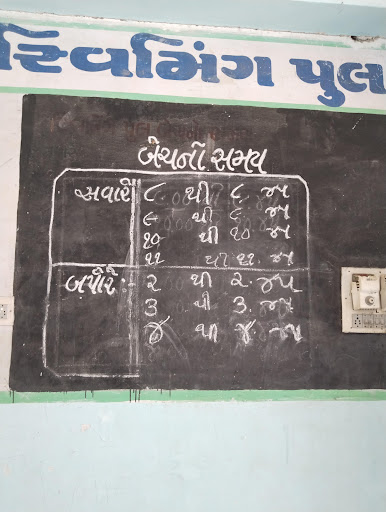 સ્વિમિંગ પુલ
બેચનો સમય
સવારે ૮ થી ૮.૪૫
૯ થી ૯.૪૫
૧૦ થી ૧૦.૪૫
૧૧ થી ૧૧.૪૫
બપોરે :- ૨ થી ૨.૪૫
૩ થી ૩.૪૫
૪ થી ૪.૪૫